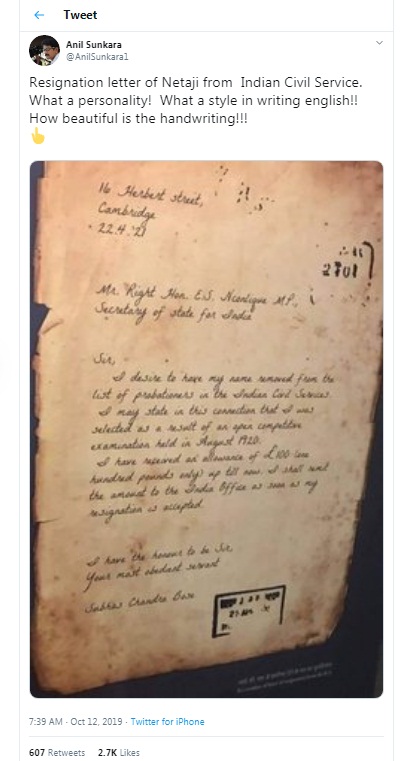 Tweet
Anil Sunkara
@AnilSunkara1
Resignation letter of Netaji from Indian Civil Service.
What a personality! What a style in writing english!!
How beautiful is the handwriting!!!
16 Herbert street,
Cambridge
22.4.'21
2701
Mr. Right Hon. E.S. M.P.,
Secretary of state for India
Sir,
I desire to have my name removed from the
list of probationers in the Indian Civil Services.
I may state in this connection that I was
selected as a result of an open competitive
examination held in August 1920.
I have received an allowance of £100 (one
hundred pounds only) up till now. I shall remit
the amount to the India Office as soon as my
resignation is accepted.
I have the honour to be Sir,
Your most obedient servant
Subhas Chandra Bose
7:39 AM · Oct 12, 2019 · Twitter for iPhone
607 Retweets 2.7K Likes